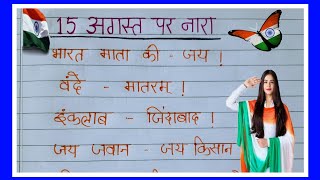 15 अगस्त पर नारा
भारत माता की - जय !
वंदे - मातरम !
इंकलाब - जिंदाबाद !
जय जवान - जय किसान